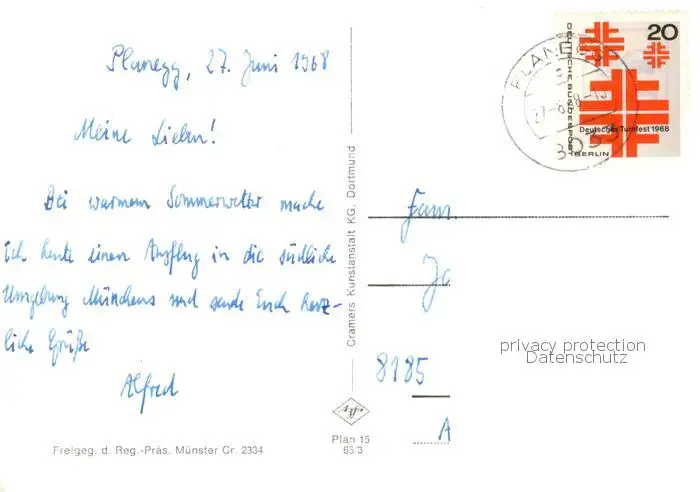 Planegg, 27. Juni 1968
Meine Lieben!
Bei warmem Sommerwetter mache
ich heute einen Ausflug in die südliche
Umgebung Münchens und sende Euch herz-
liche Grüße
Alfred
Freigeg. d. Reg.-Präs. Münster Cr. 2334
Cramers Kunstanstalt KG, Dortmund
Cky
Plan 15
66/3
20
DEUTSCHE BUNDESPOST
Deutsches Turnfest 1968
BERLIN
PLANEGG
27.-6.68-15
8033
Fam
Jo
8185
A
privacy protection
Datenschutz